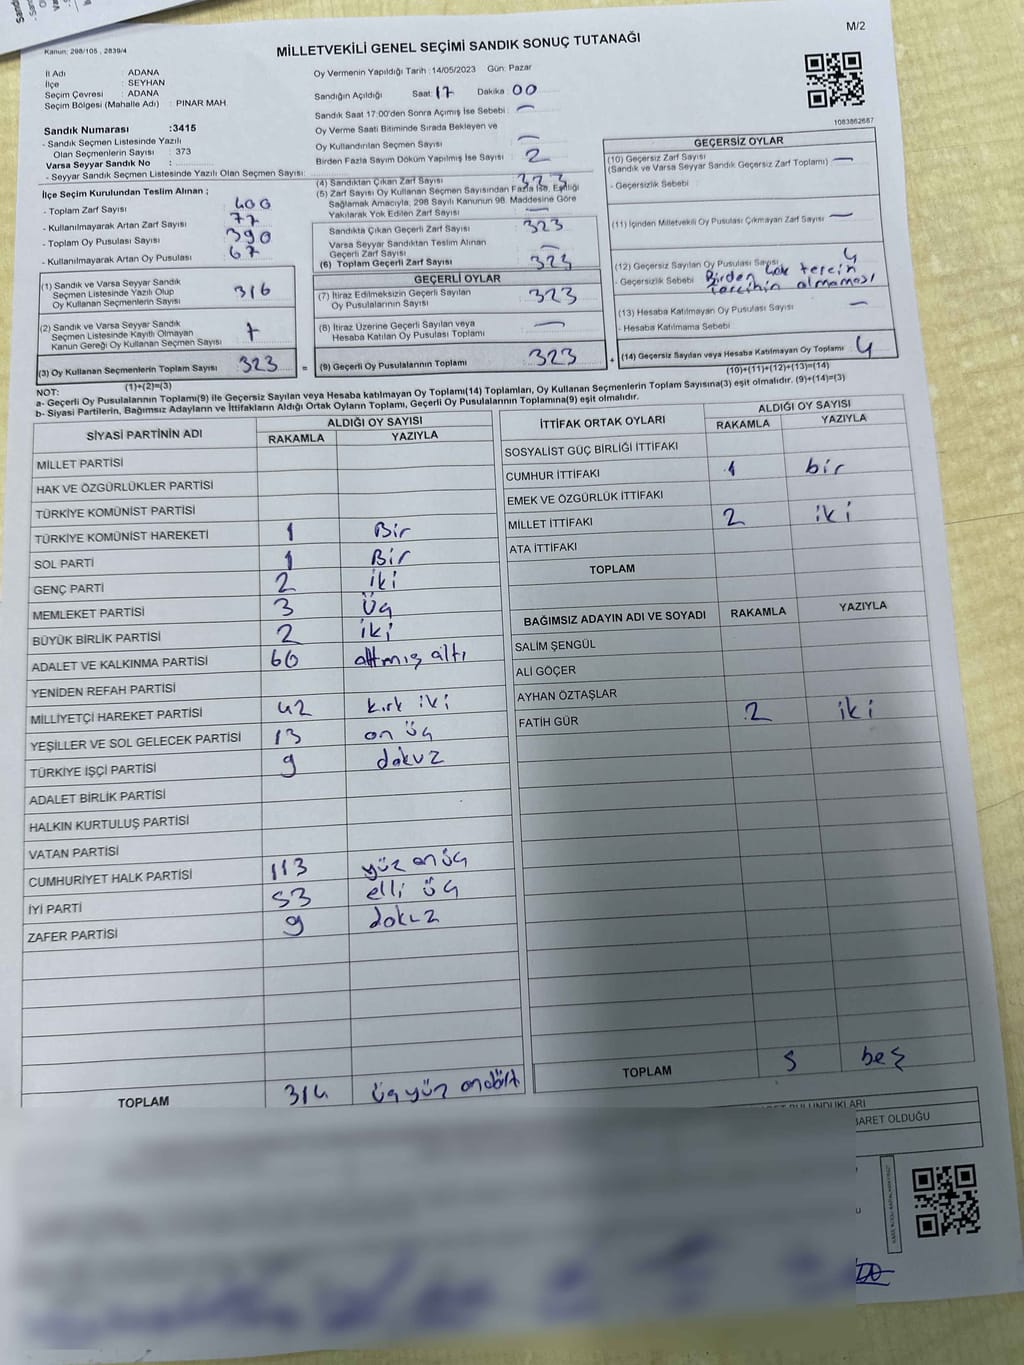 M/2
Kanun: 298/105 , 2839/4
MİLLETVEKİLİ GENEL SEÇİMİ SANDIK SONUÇ TUTANAĞI
İl Adı : ADANA
İlçe : SEYHAN
Seçim Çevresi : ADANA
Seçim Bölgesi (Mahalle Adı) : PINAR MAH
Sandık Numarası :3415
- Sandık Seçmen Listesinde Yazılı
Olan Seçmenlerin Sayısı : 373
Varsa Seyyar Sandık No :
- Seyyar Sandık Seçmen Listesinde Yazılı Olan Seçmen Sayısı:
Oy Vermenin Yapıldığı Tarih :14/05/2023 Gün: Pazar
Sandığın Açıldığı Saat: 17 Dakika: 00
Sandık Saat 17:00'den Sonra Açımış İse Sebebi : —
Oy Verme Saati Bitiminde Sırada Bekleyen ve
Oy Kullandırılan Seçmen Sayısı : —
Birden Fazla Sayım Döküm Yapılmış İse Sayısı : 2
1083862687
İlçe Seçim Kurulundan Teslim Alınan ;
- Toplam Zarf Sayısı : 400
- Kullanılmayarak Artan Zarf Sayısı : 77
- Toplam Oy Pusulası Sayısı : 390
- Kullanılmayarak Artan Oy Pusulası : 67
(1) Sandık ve Varsa Seyyar Sandık
Seçmen Listesinde Yazılı Olup
Oy Kullanan Seçmenlerin Sayısı 316
(2) Sandık ve Varsa Seyyar Sandık
Seçmen Listesinde Kayıtlı Olmayan
Kanun Gereği Oy Kullanan Seçmen Sayısı 7
(3) Oy Kullanan Seçmenlerin Toplam Sayısı 323
(1)+(2)=(3)
=
(4) Sandıktan Çıkan Zarf Sayısı : 323
(5) Zarf Sayısı Oy Kullanan Seçmen Sayısından Fazla İse, Eşitliği
Sağlamak Amacıyla, 298 Sayılı Kanunun 98. Maddesine Göre
Yakılarak Yok Edilen Zarf Sayısı : —
Sandıkta Çıkan Geçerli Zarf Sayısı : 323
Varsa Seyyar Sandıktan Teslim Alınan
Geçerli Zarf Sayısı : —
(6) Toplam Geçerli Zarf Sayısı : 323
GEÇERLİ OYLAR
(7) İtiraz Edilmeksizin Geçerli Sayılan
Oy Pusulalarının Sayısı : 323
(8) İtiraz Üzerine Geçerli Sayılan veya
Hesaba Katılan Oy Pusulası Toplamı : —
(9) Geçerli Oy Pusulalarının Toplamı 323
+
GEÇERSİZ OYLAR
(10) Geçersiz Zarf Sayısı
(Sandık ve Varsa Seyyar Sandık Geçersiz Zarf Toplamı) : —
- Geçersizlik Sebebi :
(11) İçinden Milletvekili Oy Pusulası Çıkmayan Zarf Sayısı : —
(12) Geçersiz Sayılan Oy Pusulası Sayısı : 4
- Geçersizlik Sebebi : Birden çok tercih
tercihin olmaması
(13) Hesaba Katılmayan Oy Pusulası Sayısı : —
- Hesaba Katılmama Sebebi :
(14) Geçersiz Sayılan veya Hesaba Katılmayan Oy Toplamı 4
(10)+(11)+(12)+(13)=(14)
NOT:
a- Geçerli Oy Pusulalarının Toplamı(9) ile Geçersiz Sayılan veya Hesaba katılmayan Oy Toplamı(14) Toplamları, Oy Kullanan Seçmenlerin Toplam Sayısına(3) eşit olmalıdır. (9)+(14)=(3)
b- Siyasi Partilerin, Bağımsız Adayların ve İttifakların Aldığı Ortak Oyların Toplamı, Geçerli Oy Pusulalarının Toplamına(9) eşit olmalıdır.
SİYASİ PARTİNİN ADI ALDIĞI OY SAYISI
RAKAMLA YAZIYLA
MİLLET PARTİSİ
HAK VE ÖZGÜRLÜKLER PARTİSİ
TÜRKİYE KOMÜNİST PARTİSİ
TÜRKİYE KOMÜNİST HAREKETİ 1 Bir
SOL PARTİ 1 Bir
GENÇ PARTİ 2 iki
MEMLEKET PARTİSİ 3 üç
BÜYÜK BİRLİK PARTİSİ 2 iki
ADALET VE KALKINMA PARTİSİ 66 altmış altı
YENİDEN REFAH PARTİSİ
MİLLİYETÇİ HAREKET PARTİSİ 42 kırk iki
YEŞİLLER VE SOL GELECEK PARTİSİ 13 on üç
TÜRKİYE İŞÇİ PARTİSİ 9 dokuz
ADALET BİRLİK PARTİSİ
HALKIN KURTULUŞ PARTİSİ
VATAN PARTİSİ
CUMHURİYET HALK PARTİSİ 113 yüz on üç
İYİ PARTİ 53 elli üç
ZAFER PARTİSİ 9 dokuz
TOPLAM 314 üçyüz ondört
İTTİFAK ORTAK OYLARI ALDIĞI OY SAYISI
RAKAMLA YAZIYLA
SOSYALİST GÜÇ BİRLİĞİ İTTİFAKI
CUMHUR İTTİFAKI 1 bir
EMEK VE ÖZGÜRLÜK İTTİFAKI
MİLLET İTTİFAKI 2 iki
ATA İTTİFAKI
TOPLAM
BAĞIMSIZ ADAYIN ADI VE SOYADI RAKAMLA YAZIYLA
SALİM ŞENGÜL
ALİ GÖÇER
AYHAN ÖZTAŞLAR
FATİH GÜR 2 iki
TOPLAM 5 beş
BARET OLDUĞU